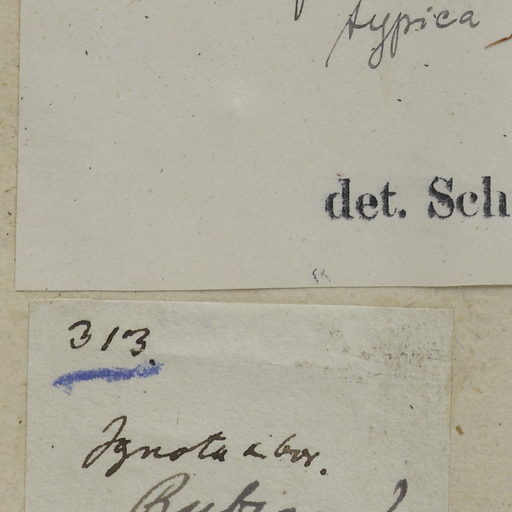 typica
det. Sch
313.
Ignota arbor.